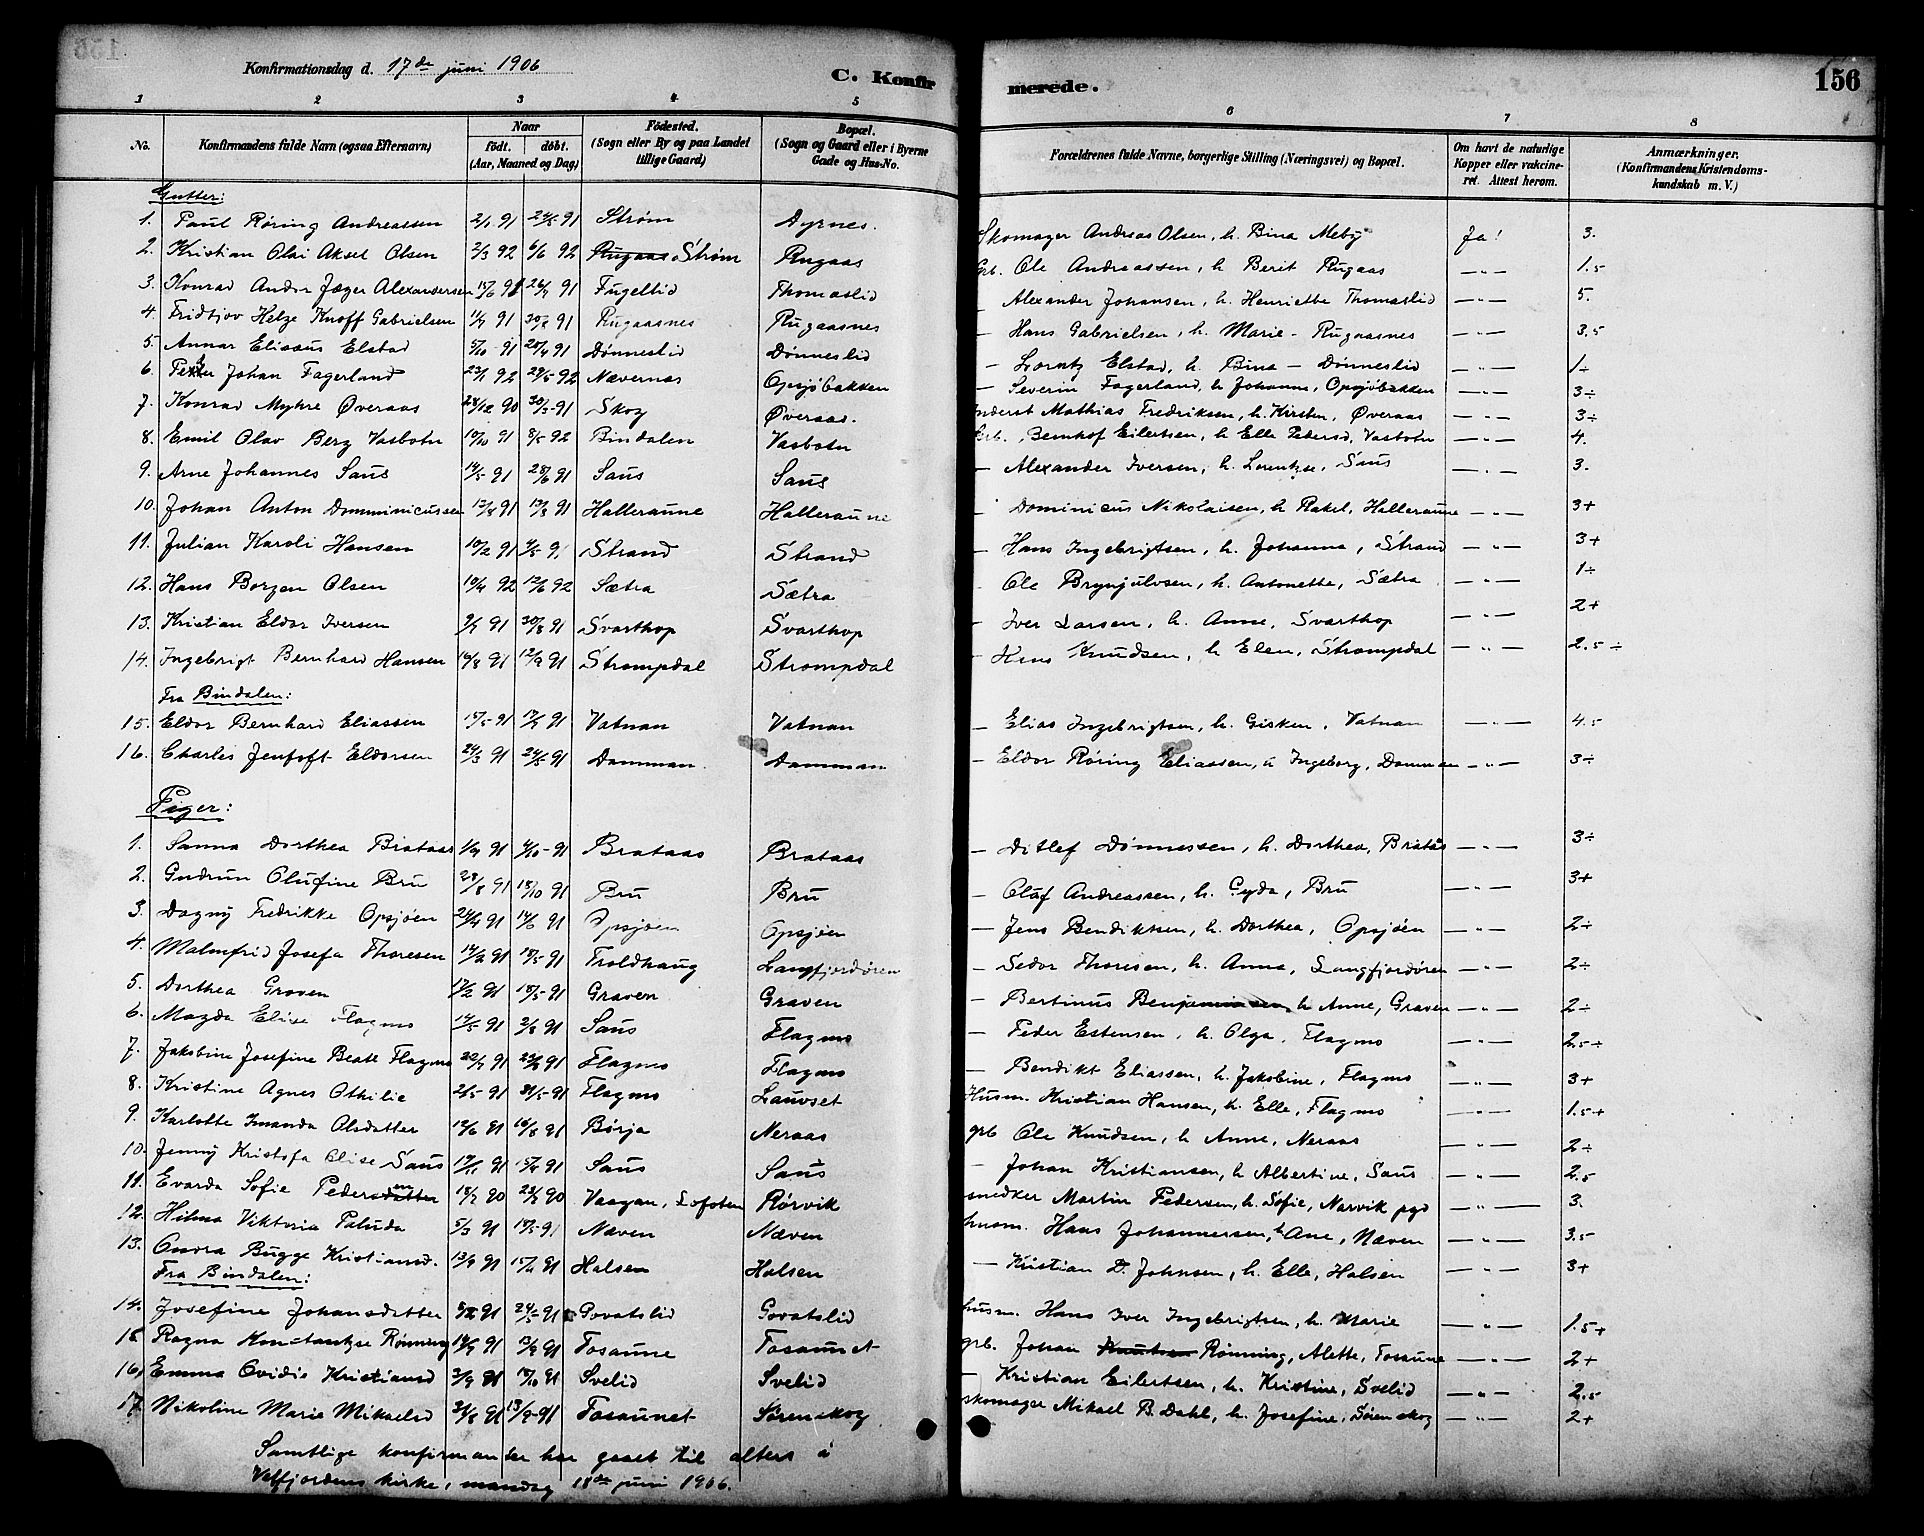 Konfirmationsdag d. 17de juni 1906
C. Konfirmerede.
156
1 2 3 4 5 6 7 8
No. Konfirmandens fulde Navn (ogsaa Efternavn) Naar født. døbt. (Aar, Maaned og Dag) Fødested. (Sogn eller By og paa Landet tillige Gaard) Bopæl. (Sogn og Gaard eller i Byerne Gade og Hus-No.) Forældrenes fulde Navne, borgerlige Stilling (Næringsvei) og Bopæl. Om havt de naturlige Kopper eller vakcineret. Attest herom. Anmærkninger. (Konfirmandens Kristendomskundskab m. V.)
Gutter:
1. Paul Røring Andreassen 2/1 91 24/5 91 Strøm Dyrnes. Skomager Andreas Olsen, h. Bina Meby Ja! 3.
2. Kristian Olai Aksel Olsen 2/3 92 6/6 92 Rugaas Strøm Rugaas Grb. Ole Andreassen, h Berit Rugaas —"— 1.5
3. Konrad Andor Jæger Alexandersen 15/6 91 26/7 91 Fugellid Thomaslid — Alexander Johansen, h. Henriette Thomaslid —"— 5.
4. Fridtjov Helge Knoff Gabrielsen 91 91 Rugaasnes Rugaasnes — Hans Gabrielsen, h. Marie - Rugaasnes —"— 3.5
5. Annar Eliseus Elstad 5/10 91 91 Dønneslid Dønneslid — Lorntz Elstad, h. Bina — Dønneslid —"— 1÷
6. Petter Johan Fagerland 23/1 92 29/5 92 Nævernes Opsjøbakken — Severin Fagerland, h Johanna, Opsjøbakken —"— 3÷
7. Konrad Myhre Øveraas 28/12 90 91 Skog Øveraas. Inderst Mathias Fredriksen, h. Kirsten, Øveraas —"— 3÷
8. Emil Olav Berg Vasbotn 10/10 91 8/5 92 Bindalen Vasbotn Grb. Bernhof Eilertsen, h Elle Pedersd, Vasbotn —"— 4.
9. Arne Johannes Saus 14/5 91 28/6 91 Saus Saus — Alexander Iversen, h. Lorentse, Saus —"— 3.
10. Johan Anton Domminicussen 91 91 Halleraune Halleraune — Dominicus Nikolaisen, h Rakel, Halleraune —"— 3+
11. Julian Karoli Hansen 10/2 91 Strand Strand — Hans Ingebrigtsen, h. Johanna, Strand —"— 3+
12. Hans Borgen Olsen 10/4 92 12/6 92 Sætra Sætra — Ole Brynjulvsen, h. Antonette, Sætra —"— 1÷
13. Kristian Eldor Iversen 91 30/8 91 Svarthop Svarthop — Iver Larsen, h. Anne, Svarthop —"— 2+
14. Ingebrigt Bernhard Hansen 16/8 91 12/9 91 Strompdal Strompdal — Hans Knudsen, h Elen, Strompdal —"— 2.5÷
Fra Bindalen:
15. Eldor Bernhard Eliassen 15/5 91 91 Vatnan Vatnan — Elias Ingebrigtsen, h. Gisken, Vatnan —"— 4.5
16. Charles Jentoft Eldorsen 24/3 91 24/5 91 Damman. Damman — Eldor Røring Eliassen, h Ingeborg, Damman —"— 3÷
Piger:
1. Sanna Dorthea Brataas 1/9 91 4/10 91 Brataas Brataas — Ditlef Dønnessen, h. Dorthea, Bratås —"— 3÷
2. Gudrun Olufine Bru 28/8 91 18/10 91 Bru Bru — Olaf Andreassen, h. Gyda, Bru —"— 3+
3. Dagny Fredrikke Opsjøen 91 14/6 91 Opsjøen Opsjøen — Jens Bendiktsen, h. Dorthea, Opsjøen —"— 2÷
4. Malmfrid Josefa Thoresen 14/2 91 18/5 91 Troldhaug Langfjordøren — Sedor Thoresen, h. Anna, Langfjordøren —"— 2÷
5. Dorthea Graven 17/2 91 18/5 91 Graven Graven — Bertinus Benjaminsen, h Anne, Graven —"— 2÷
6. Magda Elise Flagmo 14/5 91 2/8 91 Saus Flagmo — Peder Estensen, h. Olga, Flagmo —"— 2.5÷
7. Jakobine Josefine Beate Flagmo 91 91 Flagmo Flagmo — Bendikt Eliassen, h. Jakobine, Flagmo —"— 3+
8. Kristine Agnes Othilie 2/5 91 31/5 91 Flagmo Lauvset Husm. Kristian Hansen, h. Elle, Flagmo —"— 1.5+
9. Karlotte Imanda Olsdatter 12/6 91 16/8 91 Børja Neraas grb Ole Knudsen, h Anne, Neraas —"— 2÷
10. Jenny Kristofa Elise Saus 91 91 Saus Saus — Johan Kristiansen, h Albertine, Saus —"— 2.5
11. Evarda Sofie Pedersdatter 90 90 Vaagan, Lofoten Rørvik snedker Martin Pedersen, h. Sofie, Narvik pgd —"— 3.
12. Hilma Viktoria Paluda 5/3 91 91 Næven Næven husm. Hans Johannessen, h Ane, Næven —"— 3.5
13. Bugge Kristiansd. 91 91 Halsen Halsen — Kristian D. Johnsen, h. Elle, Halsen —"— 3+
Fra Bindalen:
14. Josefine Johansdatter 91 24/5 91 Govatslid Govatslid husm. Hans Iver Ingebrigtsen, h. Marie —"— 1.5+
15. Ragna Konstantse Rønning 91 91 Tosaune Tosaunet grb. Johan Knutsen Rønning, Alette, Tosaune —"— 2+
16. Emma Ovidie Kristiansd 3/9 91 91 Svelid Svelid — Kristian Eilertsen, h. Kristine, Svelid —"— 2.5
17. Nikoline Marie Mikaelsd 91 13/9 91 Tosaunet Sørenskog skomager Mikael B. Dahl, h. Josefine, Sørenskog —"— 2+
Samtlige konfirmander har gaaet til alters i
Velfjordens kirke, mandag 18de juni 1906.